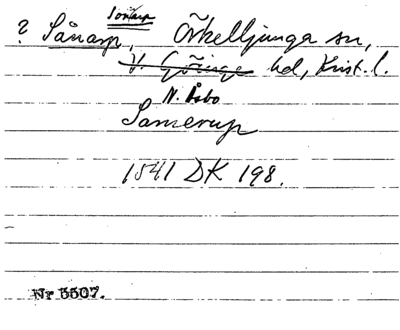 Sönarp
? Sånarp, Örkelljunga sn,
V. Göinge hd, Krist. l.
N. Åsbo
Samerup
1541 DK 198.
Nr 5507.